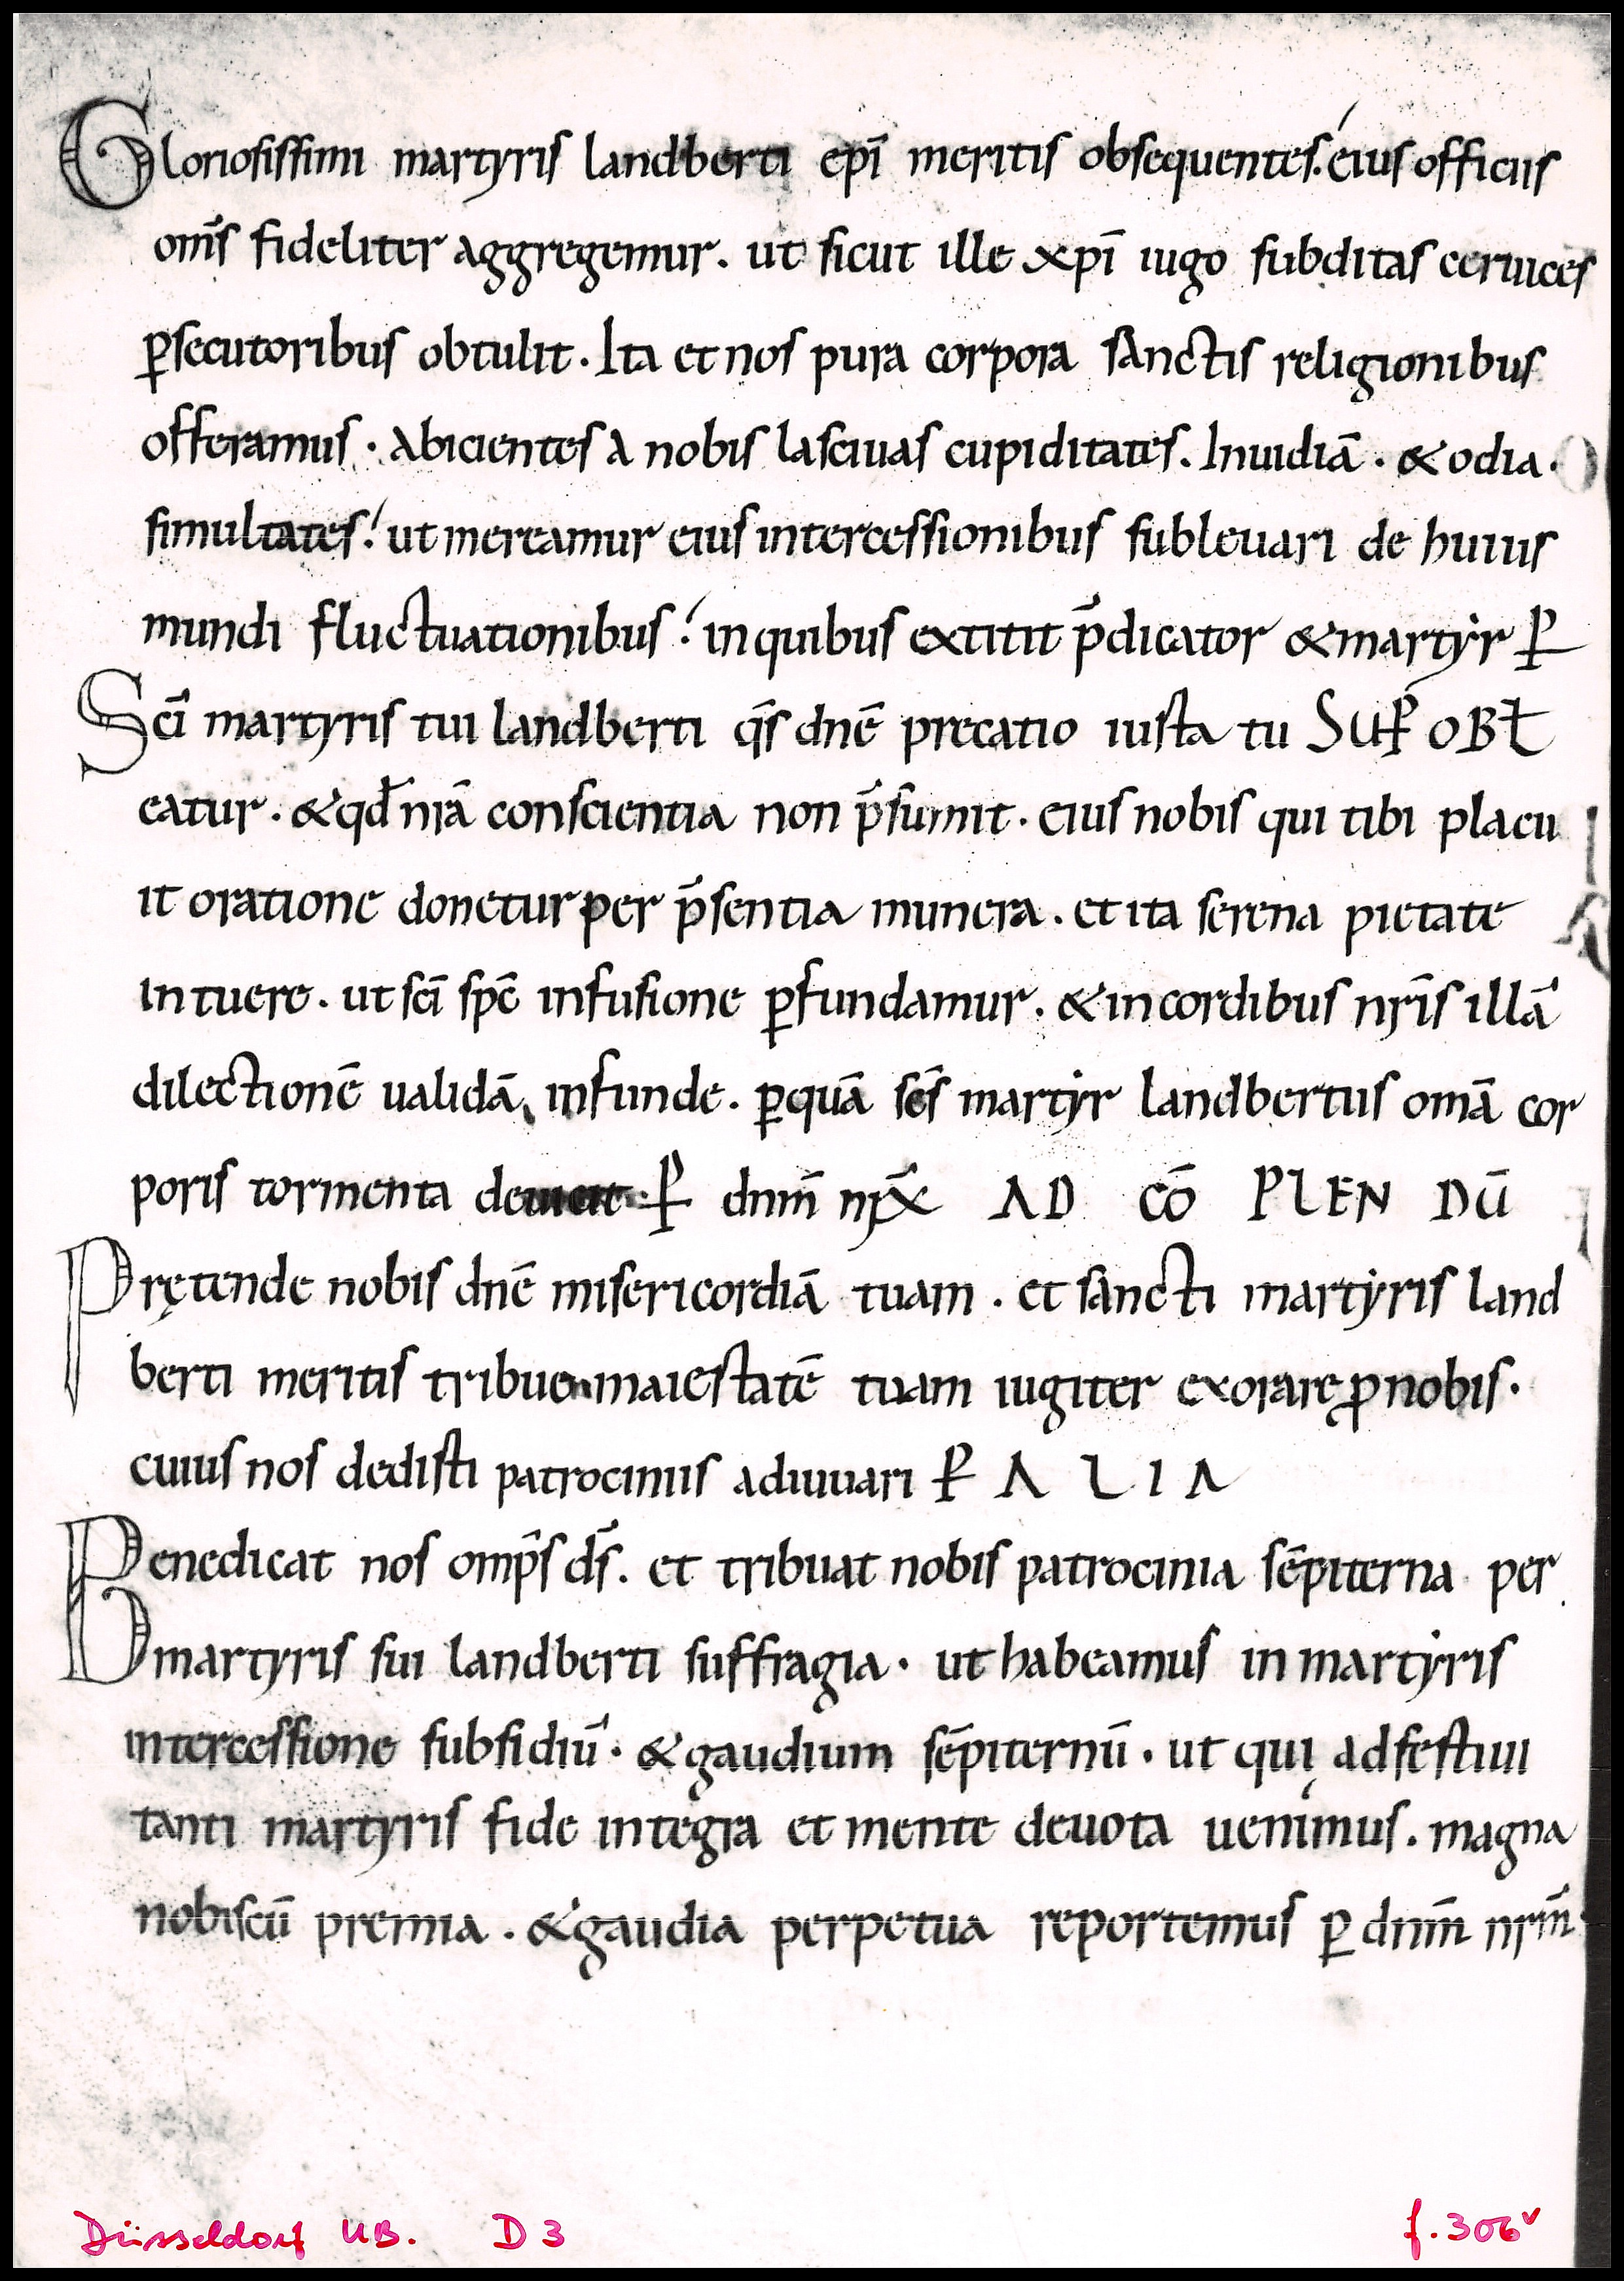 Gloriosissimi martyris landberti epī meritis obsequentes. eius officiis
om̄s fideliter aggregemur. ut sicut ille xpī iugo subditas ceruices
ꝑsecutoribus obtulit. Ita et nos pura corpora sanctis religionibus
offeramus. Abicientes a nobis lasciuas cupiditates. Inuidiā. & odia.
simultates. ut mereamur eius intercessionibus subleuari de huius
mundi fluctuationibus. in quibus extitit p̄dicator & martyr ꝑ
Scī martyris tui landberti qs̄ dnē precatio iusta tu SUꝐ OBƚ
eatur. & qđ nrā conscientia non p̄sumit. eius nobis qui tibi placu
it oratione donetur per p̄sentia munera. et ita serena pietate
intuere. ut scī spc̄ infusione ꝑfundamur. & in cordibus nrīs illā
dilectionē ualidā infunde. ꝑ quā scs̄ martyr landbertus omā cor
poris tormenta deuicit. ꝑ dnm̄ nr̄x AD CŌ PLEN DŪ
Prętende nobis dnē misericordiā tuam. et sancti martyris land
berti meritis tribue maiestatē tuam iugiter exorare ꝓ nobis.
cuius nos dedisti patrociniis adiuuari ꝑ ALIA
Benedicat nos omp̄s ds̄. et tribuat nobis patrocinia sēpiterna per
martyris sui landberti suffragia. ut habeamus in martyris
intercessione subsidiū. & gaudium sēpiternū. ut qui ad festiui
tanti martyris fide integra et mente deuota uenimus. magna
nobiscū premia. & gaudia perpetua reportemus ꝑ dnm̄ nrm̄
Düsseldorf UB. D 3 f. 306ᵛ